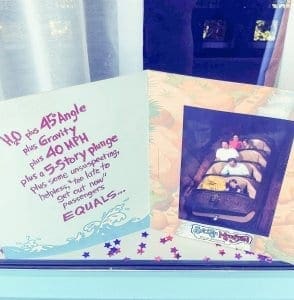 H2O plus 45° Angle
plus Gravity
plus 40 MPH
plus a 5-Story plunge
plus some unsuspecting,
helpless, "too late to
get out now"
passengers
EQUALS...
Splash Mountain